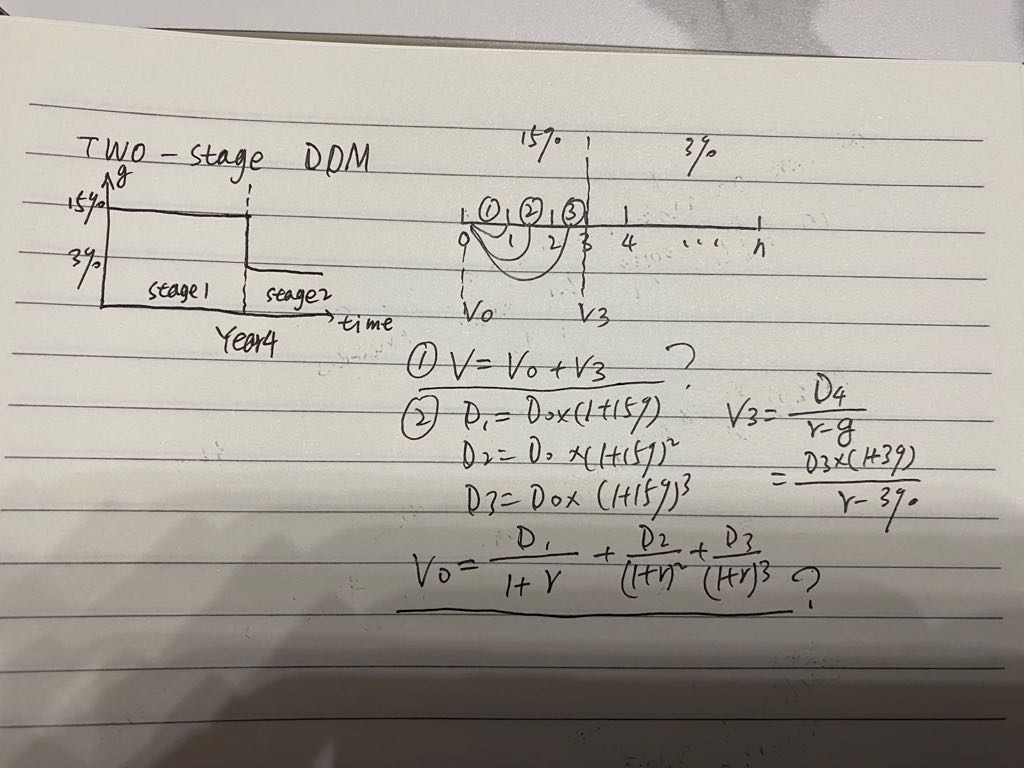 TWO-stage DDM
g
15%
3%
stage1 stage2
time
Year4
15% 3%
① ② ③
0 1 2 3 4 ... n
V0 V3
① V = V0 + V3 ?
② D1 = D0×(1+15%)
D2 = D0×(1+15%)²
D3 = D0×(1+15%)³
V3 = D4/(r-g)
= D3×(1+3%)/(r-3%)
V0 = D1/(1+r) + D2/(1+r)² + D3/(1+r)³ ?